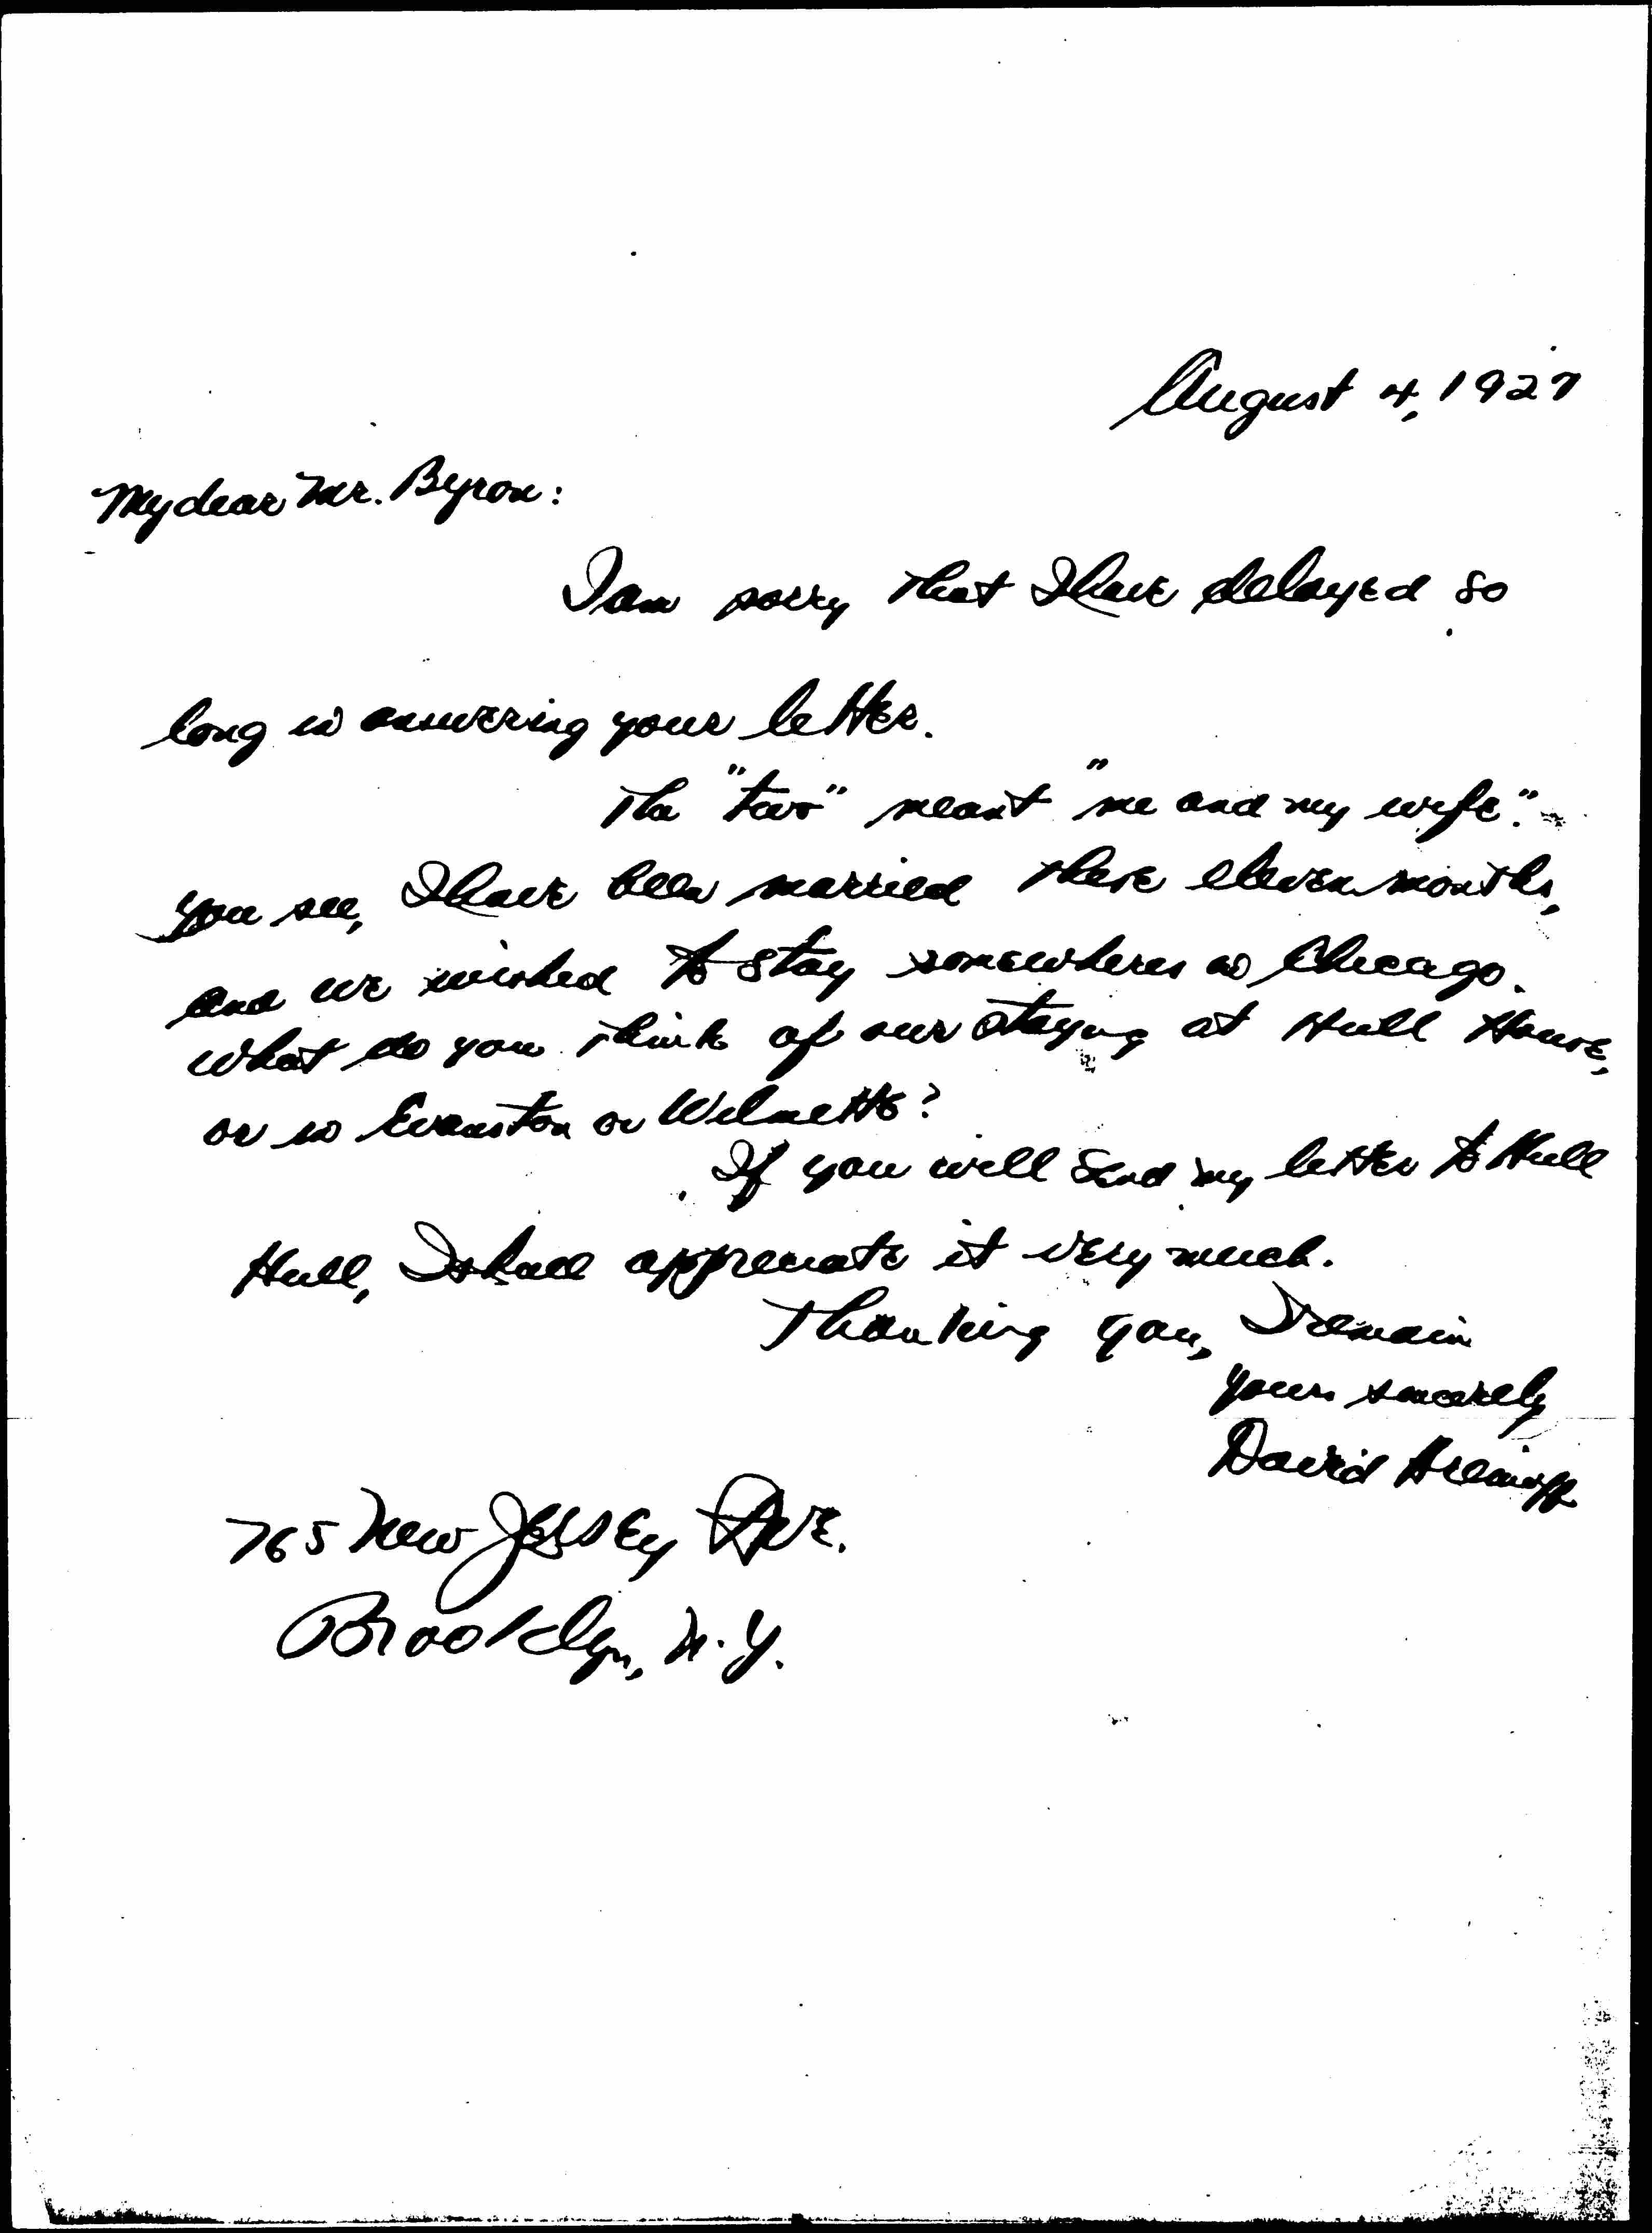 August 4, 1927
My dear Mr. Byron:
I am sorry that I have delayed so
long in answering your letter.
The "two" meant "me and my wife".
you see, I have been married these eleven months,
and we wished to stay somewheres in Chicago.
What do you think of our staying at Hull House,
or in Evanston or Wilmette?
If you will send my letter to Hull
Hull, I shall appreciate it very much.
Thanking you, I remain
yours sincerely
David
765 New Jersey Ave.
Brooklyn, N.Y.